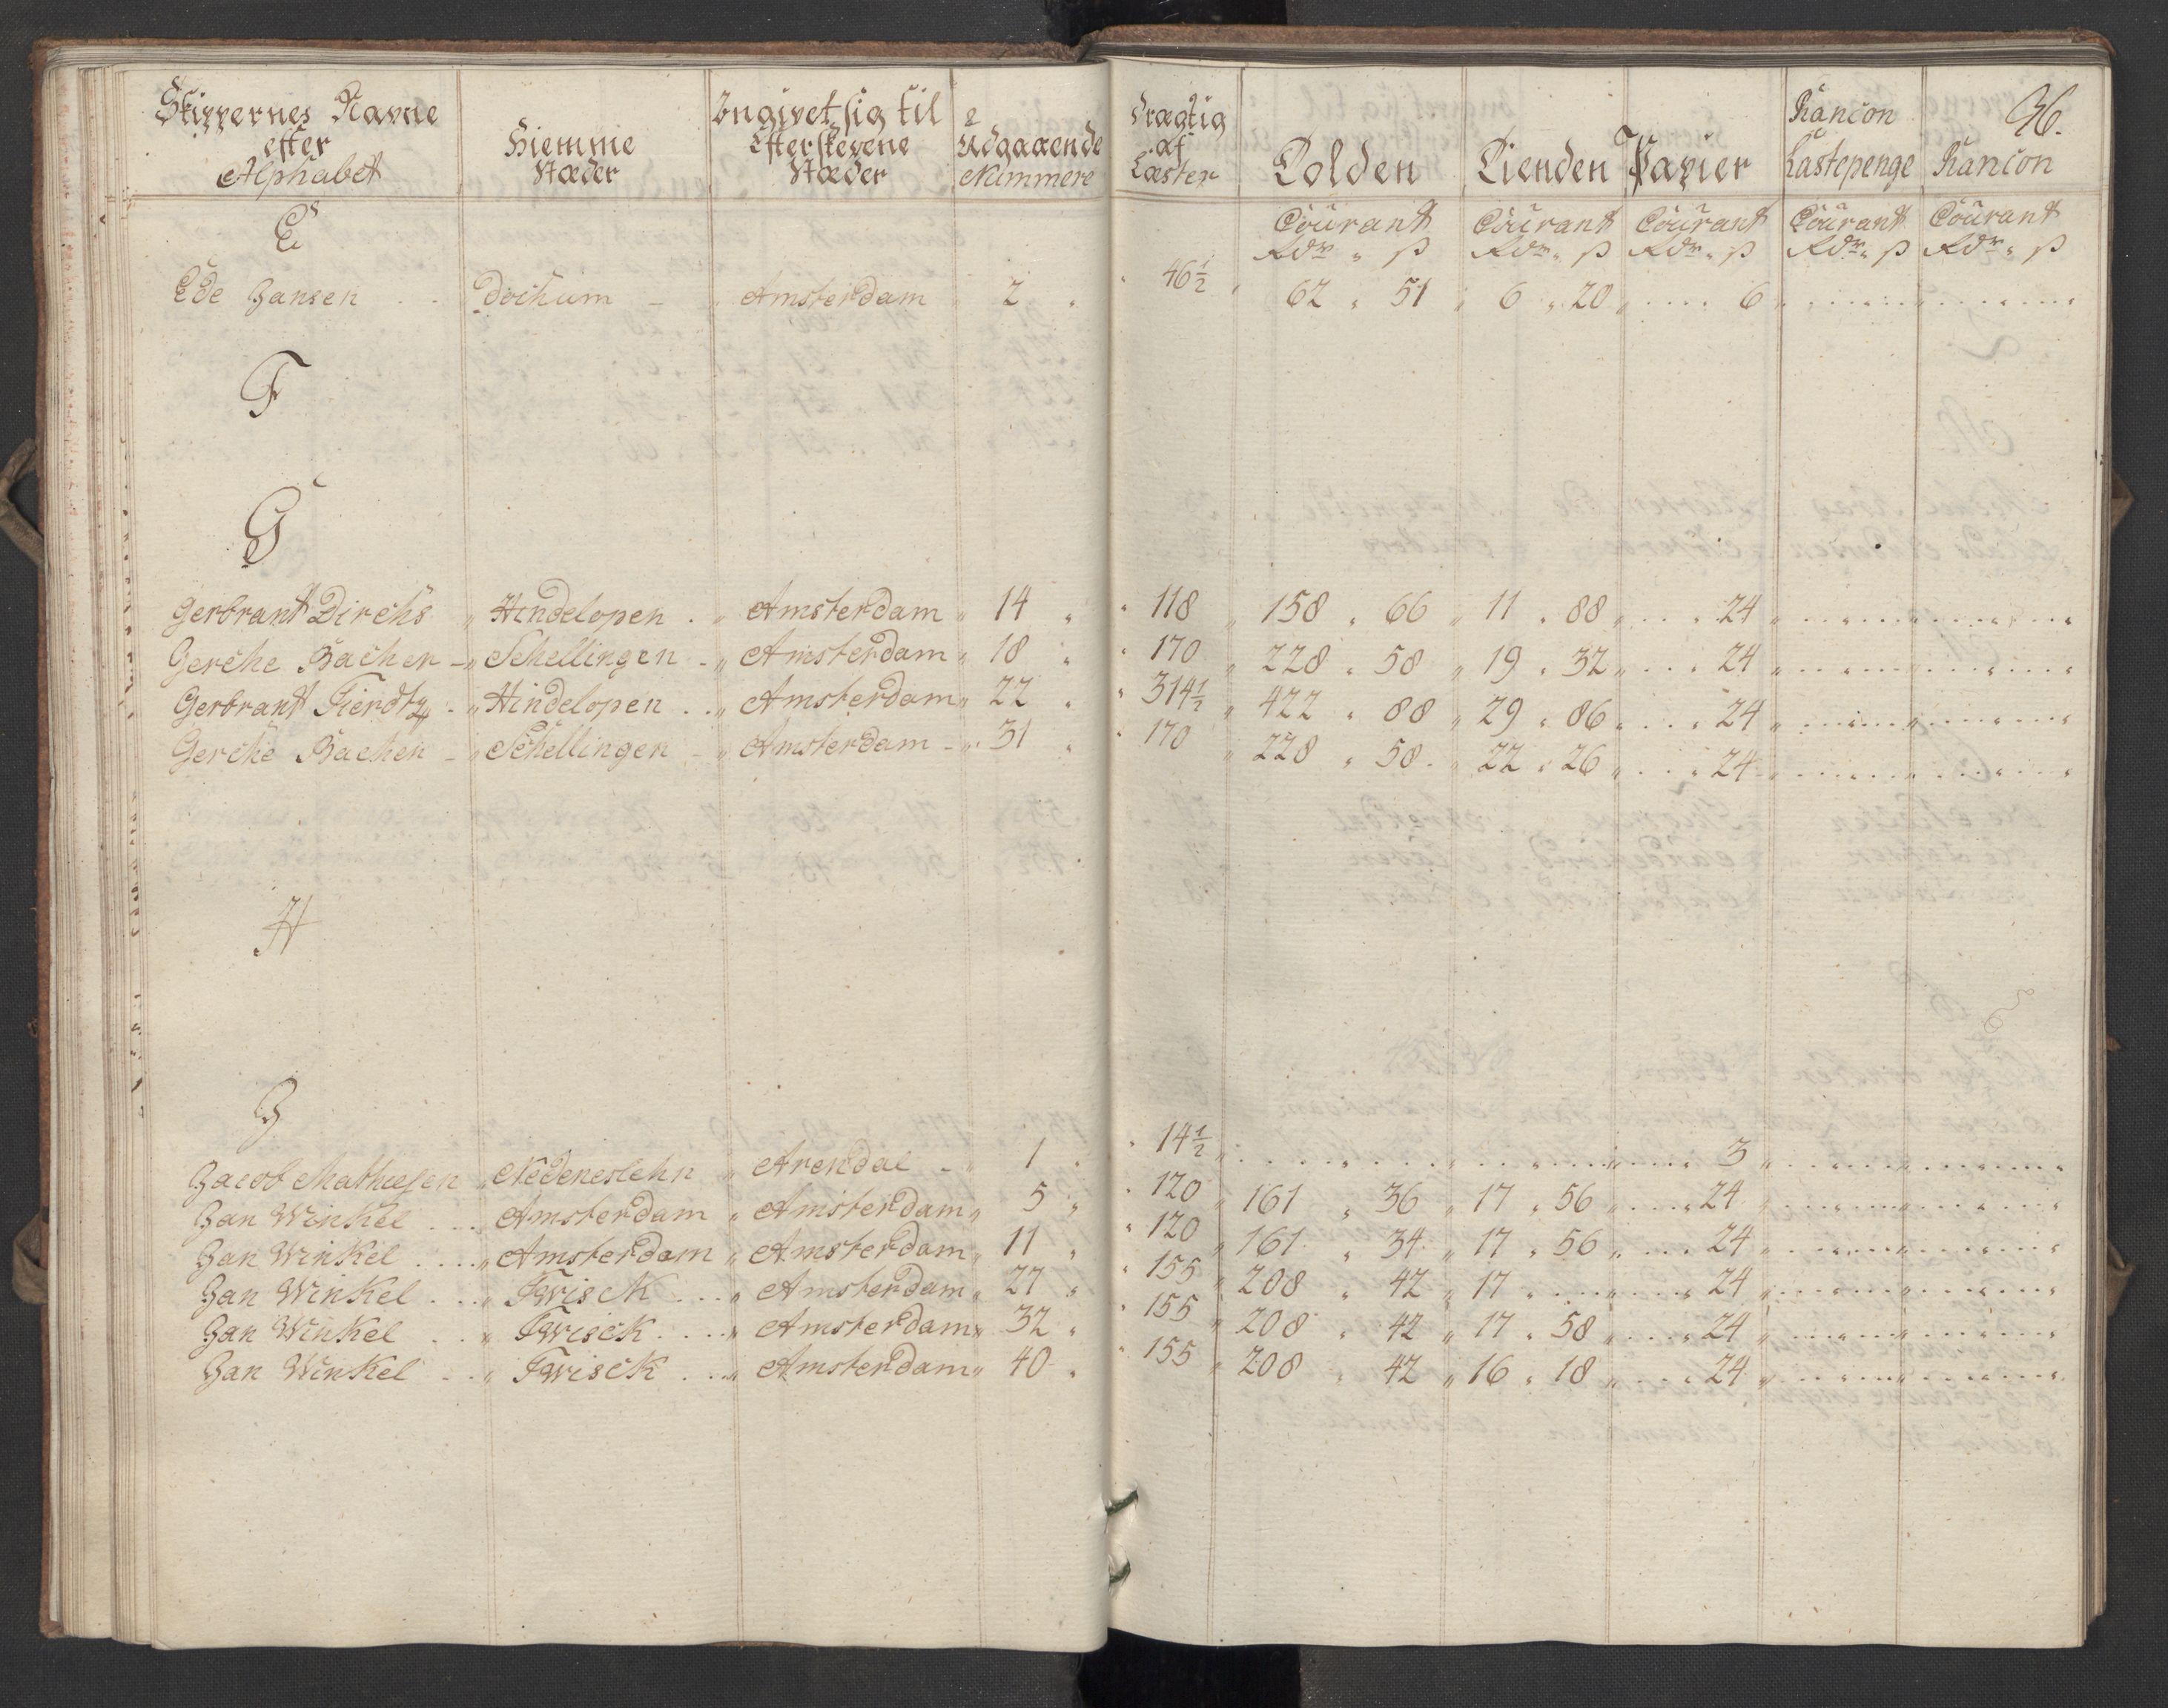 Skippernes Navne efter Alphabet | Hiemme Stæder | Angivet sig til Efterskevene Stæder | Udgaaende Nummere | Drægtig af Læster | Tolden | Tienden | Papier | Rancon Lastepenge | Rancon
96.
Courant Rdr „ ß | Courant Rdr „ ß | Courant Rdr „ ß | Courant Rdr „ ß | Courant Rdr „ ß
E
Ede Jansen . . Dochum – „ Amsterdam „ 2 „ 46½ „ 62 „ 51 „ 6 „ 20 „ . . . 6 „
F
G
Gerbrant Dirchs „ Hindelopen . „ Amsterdam „ 14 „ 118 „ 158 „ 66 „ 11 „ 88 „ . . . 24 „
Gerche Backer – „ Schellingen – „ Amsterdam „ 18 „ 170 „ 228 „ 58 „ 19 „ 32 „ . . . 24 „
Gerbrant Tierdtz – „ Hindelopen . . „ Amsterdam „ 22 „ 314½ „ 422 „ 88 „ 29 „ 86 „ . . . 24 „
Gerche Backer – „ Schellingen – „ Amsterdam – „ 31 „ 170 „ 228 „ 58 „ 22 „ 26 „ . . . 24 „
H
J
Jacob Mathiesen „ Nedeneslehn „ Arendal – „ 1 „ 14½ „ . . . 3 „
Jan Winkel . . . Amsterdam „ Amsterdam „ 5 „ 120 „ 161 „ 36 „ 17 „ 56 „ . . . 24 „
Jan Winkel . . . „ Amsterdam „ Amsterdam „ 11 „ 120 „ 161 „ 34 „ 17 „ 56 „ . . . 24 „
Jan Winkel . . . „ Twisck . . . „ Amsterdam „ 27 „ 155 „ 208 „ 42 „ 17 „ . . . 24 „
Jan Winkel . . „ Twisck . . . „ Amsterdam „ 32 „ 155 „ 208 „ 42 „ 17 „ 58 „ . . . 24 „
Jan Winkel . . „ Twisck . . . „ Amsterdam „ 40 „ 155 „ 208 „ 42 „ 16 „ 18 „ . . . 24 „